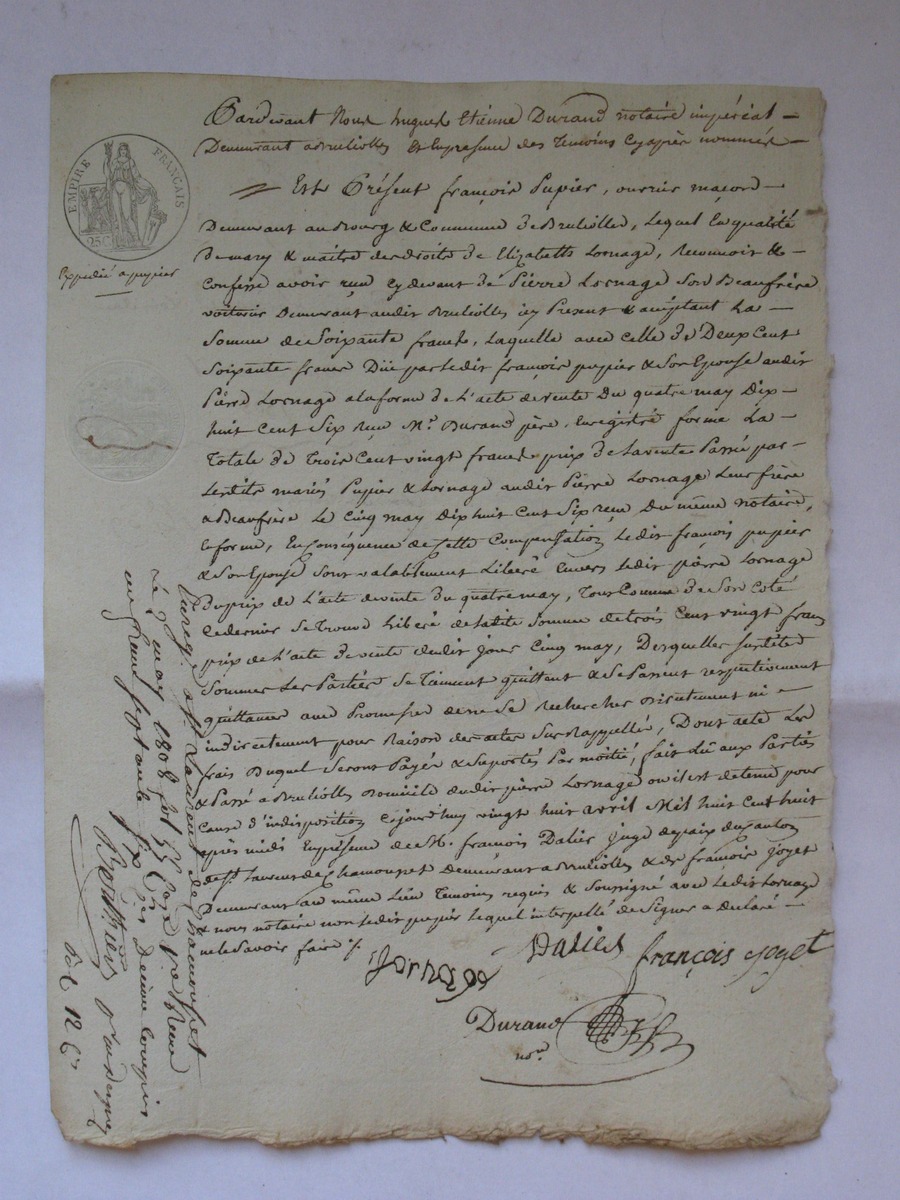 Pardevant Nous hugues Etienne Durand notaire impérial
Demeurant a Brullioles Et En presence des Temoins Cy après nommés
Est Présent françois Pupier, ouvrier maçon
Demeurant au Bourg & Commune de Brulliolle, Lequel En qualité
De mary & maitre des droits de Elizabeth Lornage, Reconnoit &
Confesse avoir reçu cy devant de Pierre Lornage Son Beaufrère
voiturier Demeurant audit Brullioles icy Present & acceptant La
Somme de Soixante francs, Laquelle avec celle de Deux Cent
Soixante francs Düe par ledit françois pupier & Son Epouse audit
Pierre Lornage a la forme de L'acte de vente Du quatre may Dix
huit Cent Six reçu Me. Durand père, Enregistré forme La
Totale de Trois Cent vingt francs prix de la vente Passé par
Lesdits mariés Pupier & Lornage audit Pierre Lornage Leur frère
& Beaufrère Le Cinq may Dix huit Cent Six reçu Du même notaire,
En forme, En Conséquence de Cette Compensation Ledit françois pupier
& Son Epouse Sont valablement Liberé Envers ledit pierre Lornage
Du prix de L'acte de vente du quatre may, Tout Comme de Son Coté
Ce dernier Se Trouve Libéré de ladite Somme de trois Cent vingt francs
prix de L'acte de vente dudit jour Cinq may, Desquelles susdites
Sommes Les Parties Se Tiennent quittent & Se Passent respectivement
quittance avec Promesse de ne Se Rechercher directement ni
indirectement pour Raison des actes Sus Rappellés, Dont acte Les
frais Duquel Seront Payés & Suportés Par moitié, fait Lû aux Parties
& Passé a Brullioles Domicile dudit pierre Lornage ou il est detenu pour
Cause d'indisposition Cejourd'huy vingt huit avril Mil huit Cent huit
après midi En présence de M. francois Dalier juge de paix du Canton
de St. Laurent de Chamousset Demeurant a Brullioles & de françois Joyet
Demeurant au même Lieu Temoins requis & Soussigné avec Ledit Lornage
& nous notaire non ledit pupier Lequel interpellé de Signer a Declaré
ne le Savoir faire
Dalier
françois joyet
jornage
Durand
nore
EMPIRE FRANÇAIS
25C
Expédié a pupier
Enreg. a St. Laurent de Chamousset
Le 2 may 1808 fol 55
un franc Septante Six Cent decime Compris